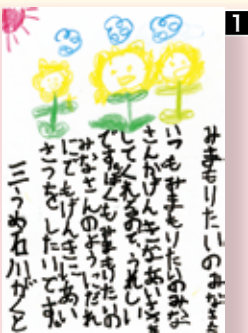 1
みまもりたいのみなさま
いつもみまもりたいのみな
さんがげんきなあいさつ
してくれるので、うれしい
です。ぼくもみまもりたいの
みなさんのように、だれ
にでもげんきにあい
さつをしたいです。